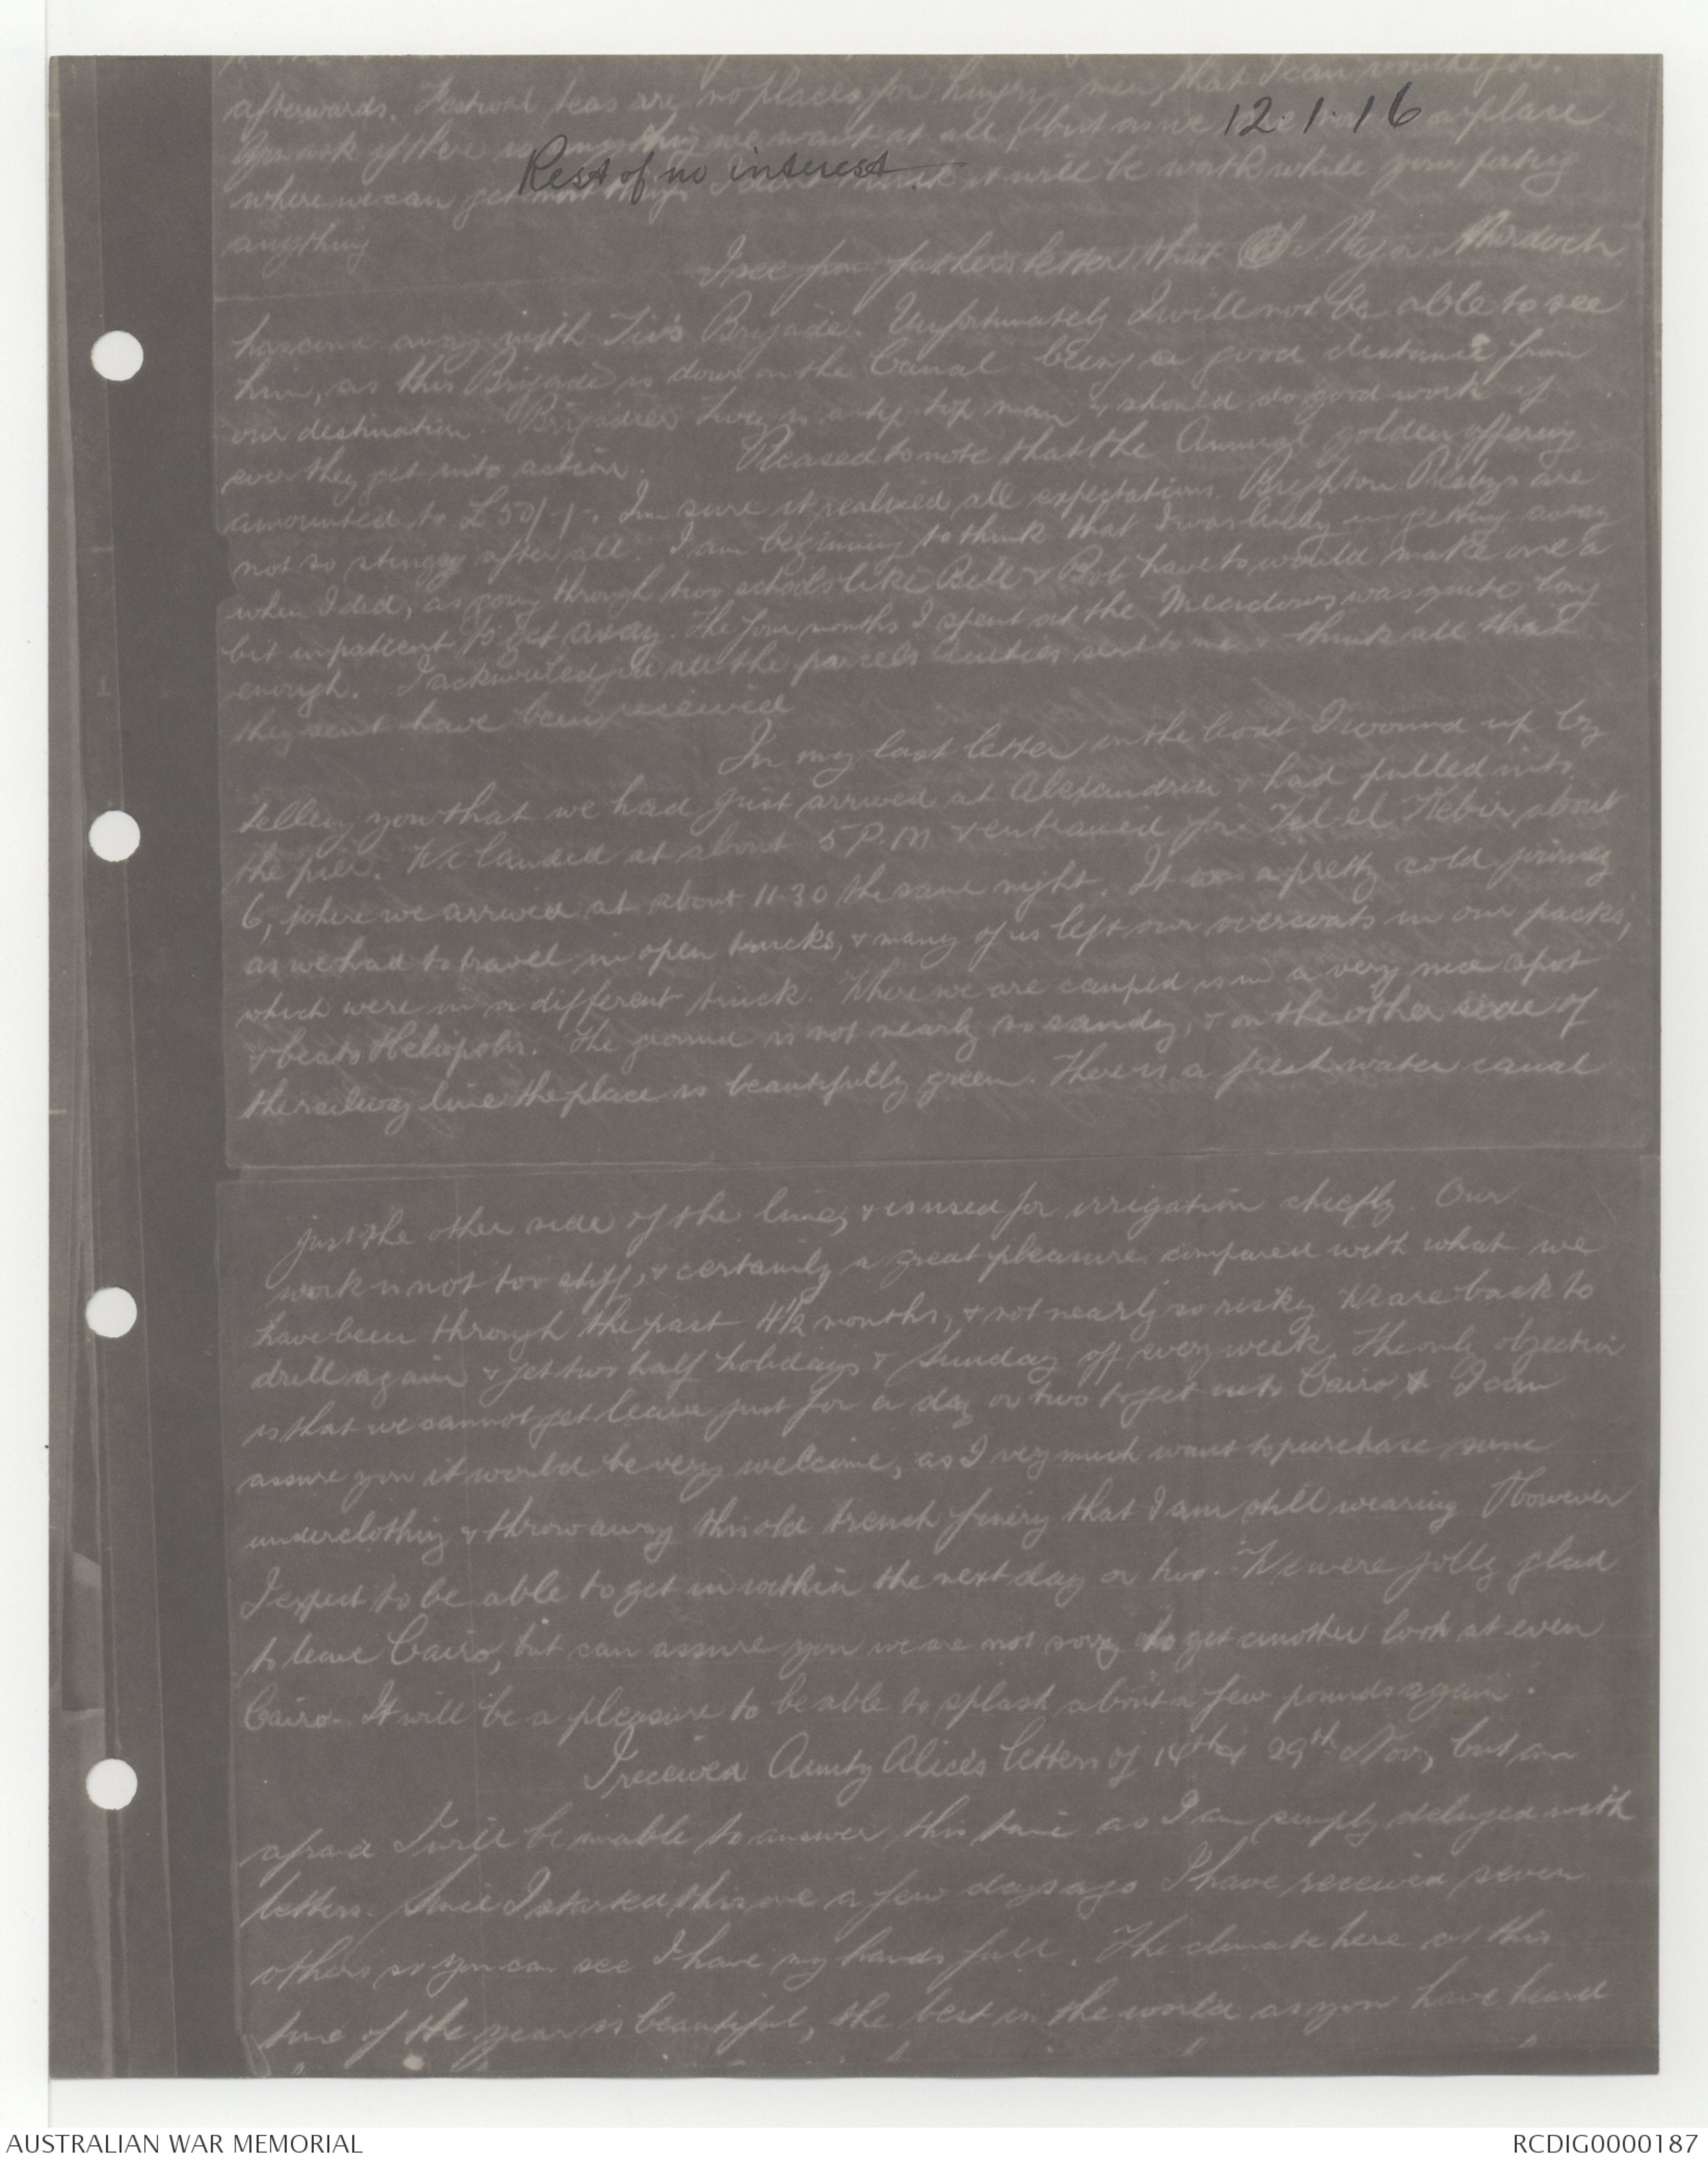 afterwards. Festival teas are no places for hungry men, that I can vouch for.
12.1.16
you ask if there is anything we want at all, but as we place
Rest of no interest.
where we can get most things I don't think it will be worth while your posting
anything
I see from father's letter that Major Murdoch
has come away with Tivs Brigade. Unfortunately I will not be able to see
him, as this Brigade is down on the Canal being a good distance from
our destination. Brigadier Tivey is a tip top man & should do good work if
ever they get into action. Pleased to note that the Annual golden offering
amounted to £50/-/-. I'm sure it realized all expectations. Brighton Presbys are
not so stingy after all. I am beginning to think that I was lucky in getting away
when I did, as going through two schools like Bill & Bob have to would make one a
bit impatient to get away. The four months I spent at the Meadows was quite long
enough. I acknowledged all the parcels aunties sent to me & think all that
they sent have been received
In my last letter on the boat I wound up by
telling you that we had just arrived at Alexandria & had pulled into
the pier. We landed at about 5 P.M & entrained for Tel-el-Kebir about
6, where we arrived at about 11.30 the same night. It was a pretty cold journey
as we had to travel in open trucks, & many of us left our overcoats in our packs,
which were in a different truck. Where we are camped is in a very nice spot
& beats Heliopolis. The ground is not nearly so sandy, & on the other side of
the railway line the place is beautifully green. There is a fresh water canal
just the other side of the line, & is used for irrigation chiefly. Our
work is not too stiff, & certainly a great pleasure compared with what we
have been through the past 4½ months, & not nearly so risky. We are back to
drill again & get two half holidays & Sunday off every week. The only objection
is that we cannot get leave just for a day or two to get into Cairo & I can
assure you it would be very welcome, as I very much want to purchase some
underclothing & throw away this old trench finery that I am still wearing. However
I expect to be able to get in within the next day or two. We were jolly glad
to leave Cairo, but can assure you we are not sorry to get another look at even
Cairo. It will be a pleasure to be able to splash about a few pounds again.
I received Aunty Alice's letters of & 29th Nov, but am
afraid I will be unable to answer this time as I am simply deluged with
letters. Since I started this one a few days ago I have received seven
others so you can see I have my hands full. The climate here at this
time of the year is beautiful, the best in the world as you have heard
AUSTRALIAN WAR MEMORIAL
RCDIG0000187